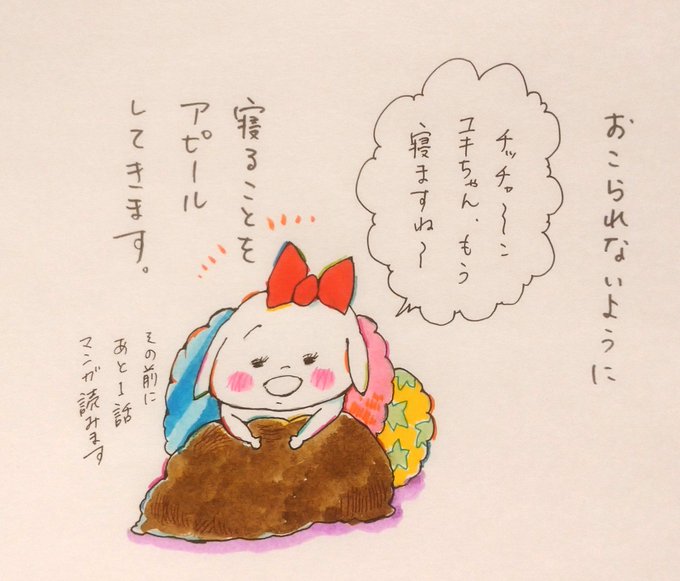 おこられないように
チッチャ〜ン
ユキちゃん、もう
寝ますね〜
寝ることを
アピール
してきます。
その前に
あと1話
マンガ読みます